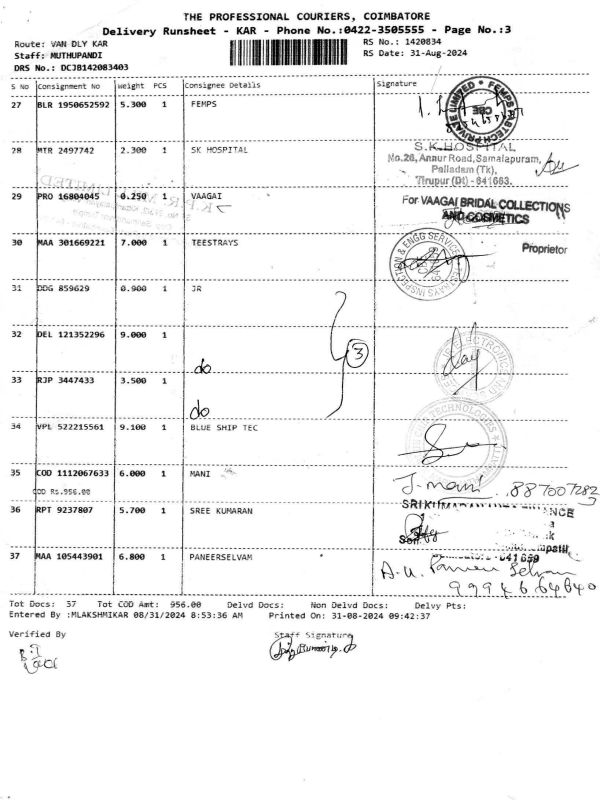 THE PROFESSIONAL COURIERS, COIMBATORE
Delivery Runsheet - KAR - Phone No.:0422-3505555 - Page No.:3
Route: VAN DLY KAR
RS No.: 1420834
Staff: MUTHUPANDI
RS Date: 31-Aug-2024
DRS No.: DCJB142083403
S No Consignment No Weight PCS Consignee Details Signature
27 BLR 1950652592 5.300 1 FEMPS
28 MTR 2497742 2.300 1 SK HOSPITAL
S.K.HOSPITAL
No.26, Annur Road, Samalapuram,
Palladam (Tk),
Tirupur (Dt) - 641663.
29 PRO 16804045 0.250 1 VAAGAI
For VAAGAI BRIDAL COLLECTIONS
AND COSMETICS
Proprietor
30 MAA 301669221 7.000 1 TEESTRAYS
31 DDG 859629 0.900 1 JR
32 DEL 121352296 9.000 1
do
3
33 RJP 3447433 3.500 1
do
34 VPL 522215561 9.100 1 BLUE SHIP TEC
35 COD 1112067633 6.000 1 MANI
J-mani 887007282
COD Rs.956.00
36 RPT 9237807 5.700 1 SREE KUMARAN
37 MAA 105443901 6.800 1 PANEERSELVAM
A.U. Panneer Selvam
9994664640
Tot Docs: 37 Tot COD Amt: 956.00 Delvd Docs: Non Delvd Docs: Delvy Pts:
Entered By :MLAKSHMIKAR 08/31/2024 8:53:36 AM Printed On: 31-08-2024 09:42:37
Verified By
Staff Signature